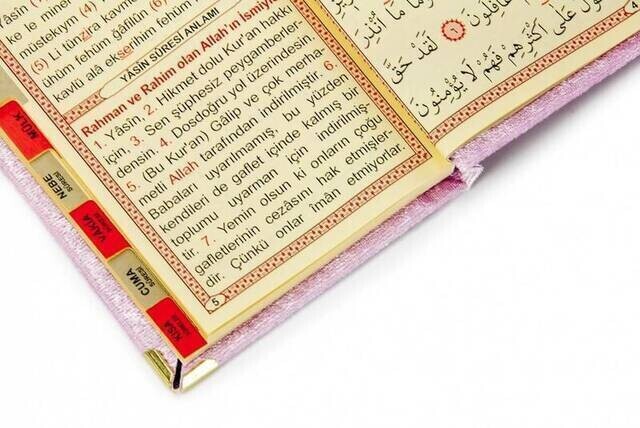 ke le mine
müstekıym (4)
(5) Li tünzira kavmem
ühüm fehüm ğâfilûn (6)
kavlü alâ ekserihim fehüm
YÂSİN SÛRESİ ANLAMI
Rahman ve Rahim olan Allah'ın İsmiyle
1. Yâsîn, 2. Hikmet dolu Kur'an hakkı
için, 3. Sen şüphesiz peygamberler
densin; 4. Dosdoğru yol üzerindesin.
5. (Bu Kur'an) Gâlip ve çok merha-
metli Allah tarafından indirilmiştir. 6.
Babaları uyarılmamış, bu yüzden
kendileri de gaflet içinde kalmış bir
toplumu uyarman için indirilmiş-
tir. 7. Yemin olsun ki onların çoğu
gafletlerinin cezasını hak etmişler-
dir. Çünkü onlar îmân etmiyorlar.
5
مَٓا اُنْذِرَ
غَافِلُونَ ٦ لَقَدْ حَقَّ
الْقَوْلُ عَلٰٓى اَكْثَرِهِمْ فَهُمْ لَا يُؤْمِنُونَ
MÜLK
NEBE
SÛRESİ
VÂKIA
SÛRESİ
CUMA
SÛRESİ
KISA
SÛRELER